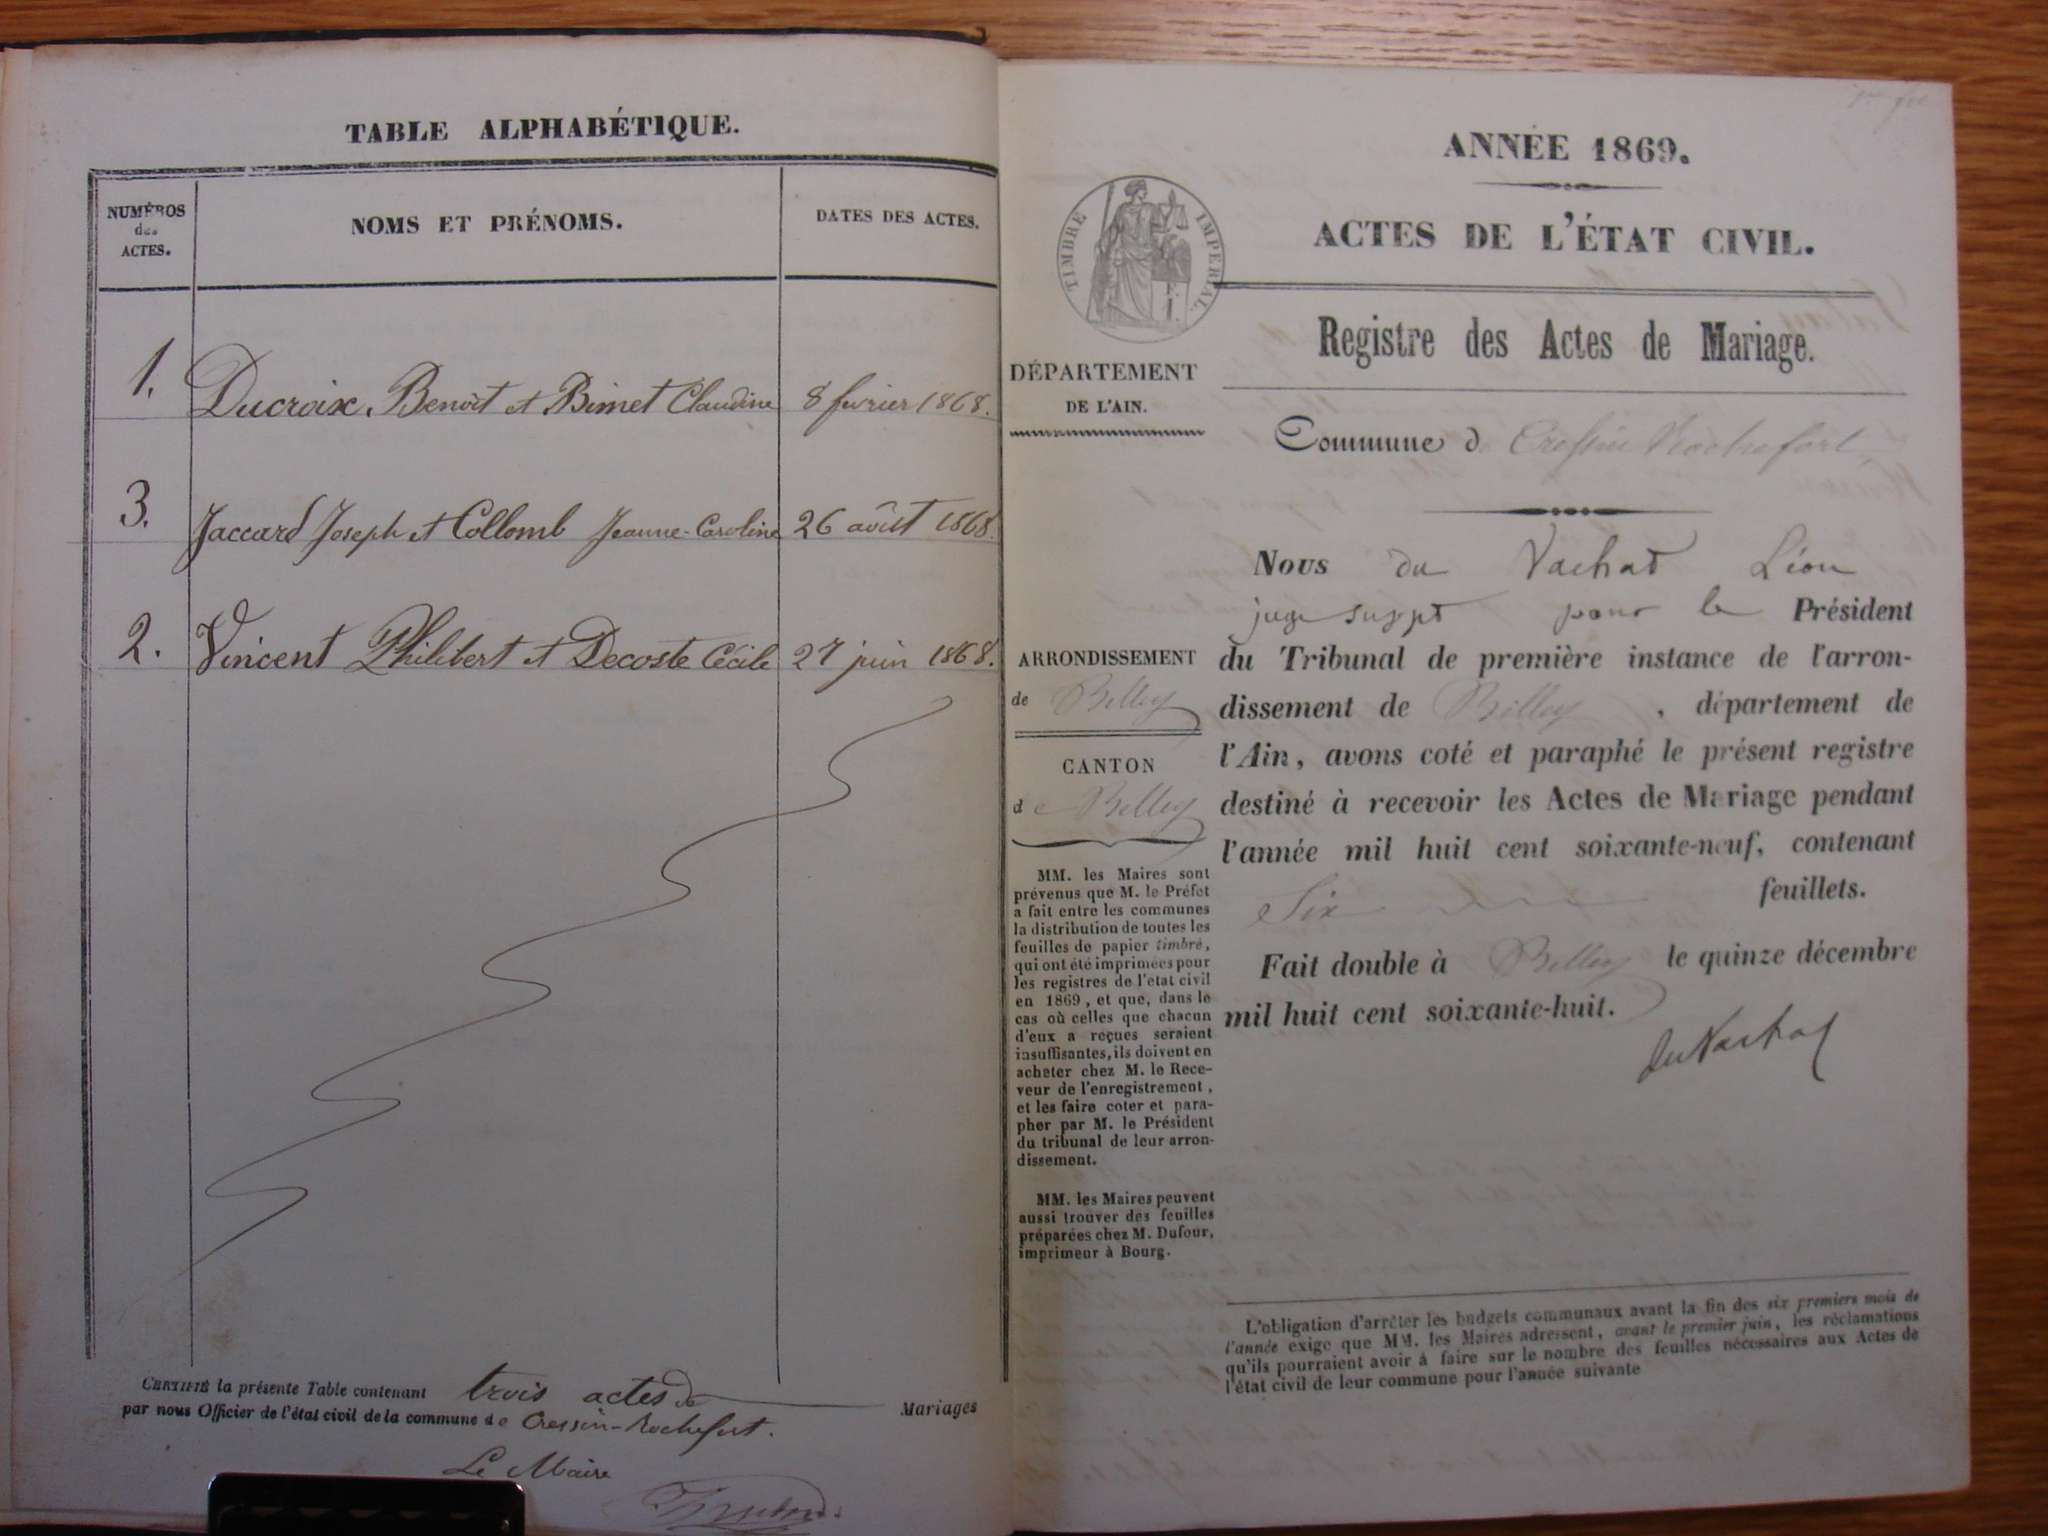 TABLE ALPHABÉTIQUE.
NUMÉROS
des
ACTES.
NOMS ET PRÉNOMS.
DATES DES ACTES.
1. Ducroix Benoit et Bimet Claudine 8 février 1868.
3. Jaccard Joseph et Collomb Jeanne-Caroline 26 août 1868.
2. Vincent Philibert et Decoste Cécile 27 juin 1868.
CERTIFIÉ la présente Table contenant trois actes de Mariages
par nous Officier de l'état civil de la commune de Cressin-Rochefort.
Le Maire
ANNÉE 1869.
ACTES DE L'ÉTAT CIVIL.
TIMBRE IMPERIAL.
Registre des Actes de Mariage.
DÉPARTEMENT
DE L'AIN.
Commune d Cressin Rochefort
ARRONDISSEMENT
de Belley
CANTON
de Belley
MM. les Maires sont
prévenus que M. le Préfet
a fait entre les communes
la distribution de toutes les
feuilles de papier timbré,
qui ont été imprimées pour
les registres de l'état civil
en 1869, et que, dans le
cas où celles que chacun
d'eux a reçues seraient
insuffisantes, ils doivent en
acheter chez M. le Rece-
veur de l'enregistrement,
et les faire coter et para-
pher par M. le Président
du tribunal de leur arron-
dissement.
MM. les Maires peuvent
aussi trouver des feuilles
préparées chez M. Dufour,
imprimeur à Bourg.
Nous du Vachat Léon
juge suppt pour le Président
du Tribunal de première instance de l'arron-
dissement de Belley, département de
l'Ain, avons coté et paraphé le présent registre
destiné à recevoir les Actes de Mariage pendant
l'année mil huit cent soixante-neuf, contenant
Six feuillets.
Fait double à Belley le quinze décembre
mil huit cent soixante-huit.
du Vachat
L'obligation d'arrêter les budgets communaux avant la fin des six premiers mois de
l'année exige que MM. les Maires adressent, avant le premier juin, les réclamations
qu'ils pourraient avoir à faire sur le nombre des feuilles nécessaires aux Actes de
l'état civil de leur commune pour l'année suivante